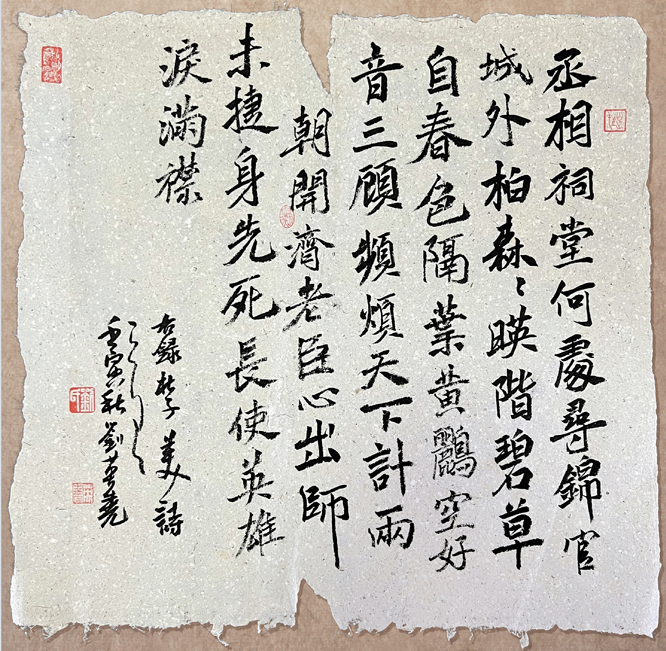 丞相祠堂何處尋錦官
城外柏森〻暎階碧草
自春色隔葉黃鸝空好
音三顧頻煩天下計兩
朝開濟老臣心出師
未捷身先死長使英雄
淚滿襟
右錄杜子美詩
壬寅秋劉